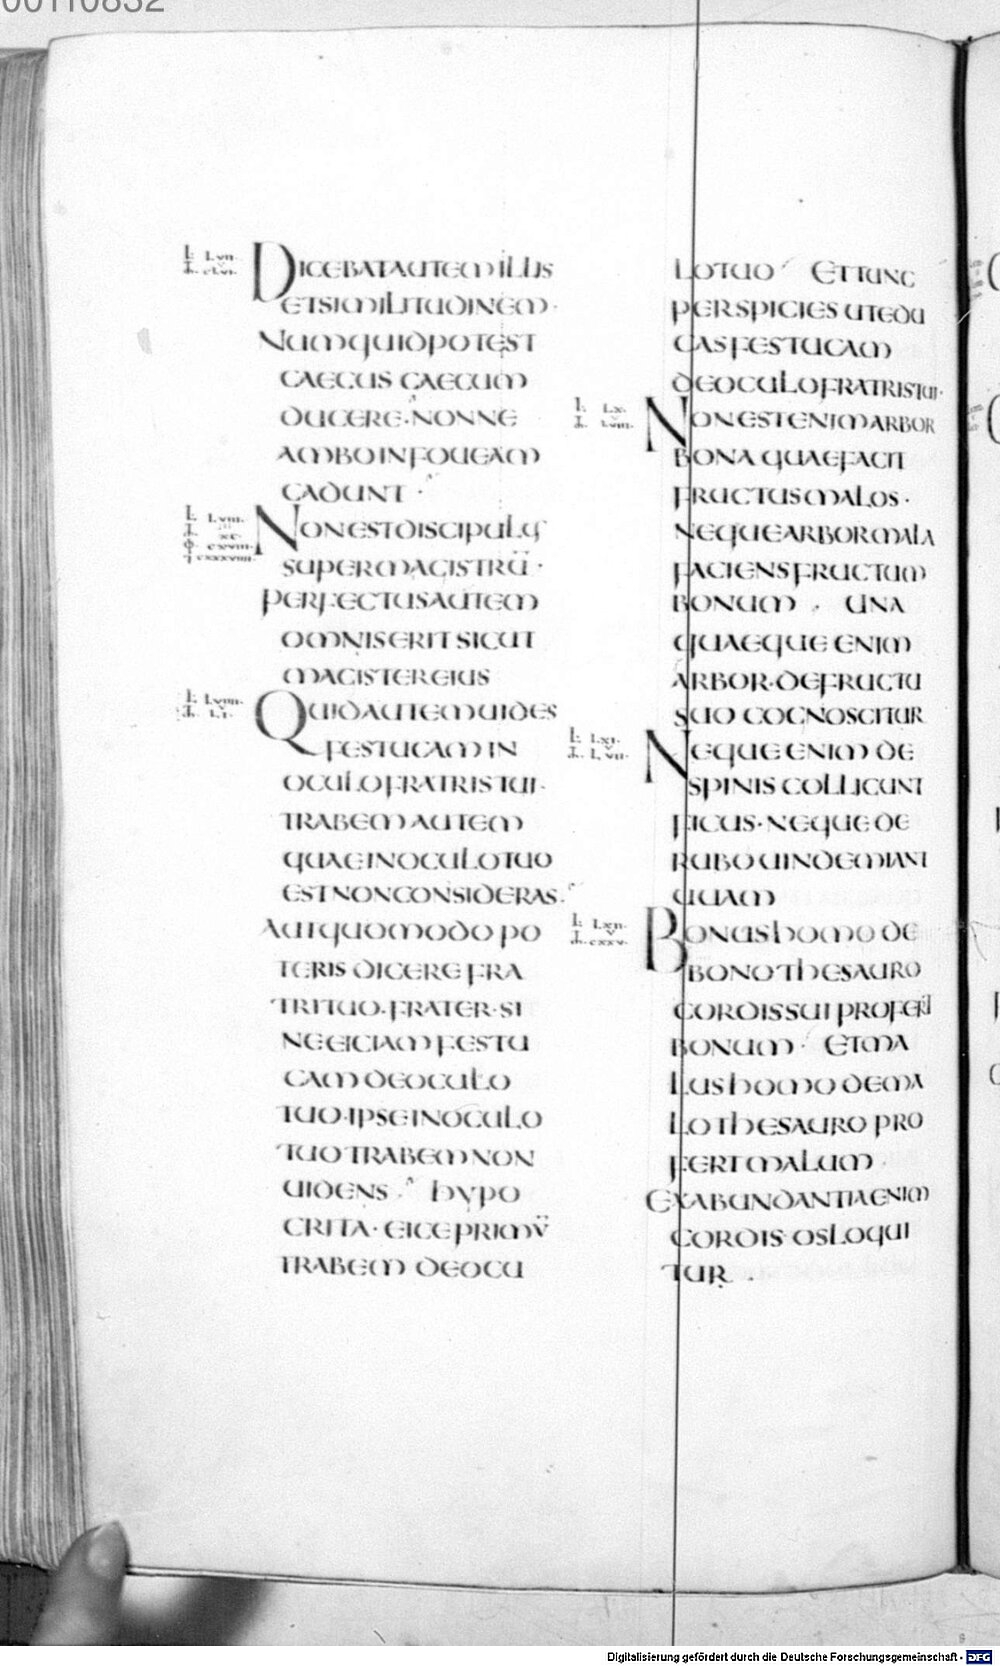 00110832
L LVII
M CLVI
DICEBAT AUTEM ILLIS
ET SIMILITUDINEM ·
NUMQUID POTEST
CAECUS CAECUM
DUCERE · NONNE
AMBO IN FOUEAM
CADUNT ·
L LVIII
M XC
CXVIII
CXXXVIIII
NON EST DISCIPULUS
SUPER MAGISTRŪ ·
PERFECTUS AUTEM
OMNIS ERIT SICUT
MAGISTER EIUS
L LVIIII
M LI
QUID AUTEM UIDES
FESTUCAM IN
OCULO FRATRIS TUI ·
TRABEM AUTEM
QUAE IN OCULO TUO
EST NON CONSIDERAS ·
AUT QUOMODO PO
TERIS DICERE FRA
TRI TUO · FRATER · SI
NE EICIAM FESTU
CAM DE OCULO
TUO · IPSE IN OCULO
TUO TRABEM NON
UIDENS · HYPO
CRITA · EICE PRIMŪ
TRABEM DE OCU
LO TUO · ET TUNC
PERSPICIES UT EDU
CAS FESTUCAM
DE OCULO FRATRIS TUI ·
L LX
M LVIII
NON EST ENIM ARBOR
BONA QUAE FACIT
FRUCTUS MALOS ·
NEQUE ARBOR MALA
FACIENS FRUCTUM
BONUM · UNA
QUAEQUE ENIM
ARBOR · DE FRUCTU
SUO COGNOSCITUR
L LXI
M LVII
NEQUE ENIM DE
SPINIS COLLIGUNT
FICUS · NEQUE DE
RUBO UINDEMIANT
UUAM
L LXII
M CXXV
BONUS HOMO DE
BONO THESAURO
CORDIS SUI PROFERT
BONUM · ET MA
LUS HOMO DE MA
LO THESAURO PRO
FERT MALUM ·
EX ABUNDANTIA ENIM
CORDIS OS LOQUI
TUR ·
Digitalisierung gefördert durch die Deutsche Forschungsgemeinschaft - DFG